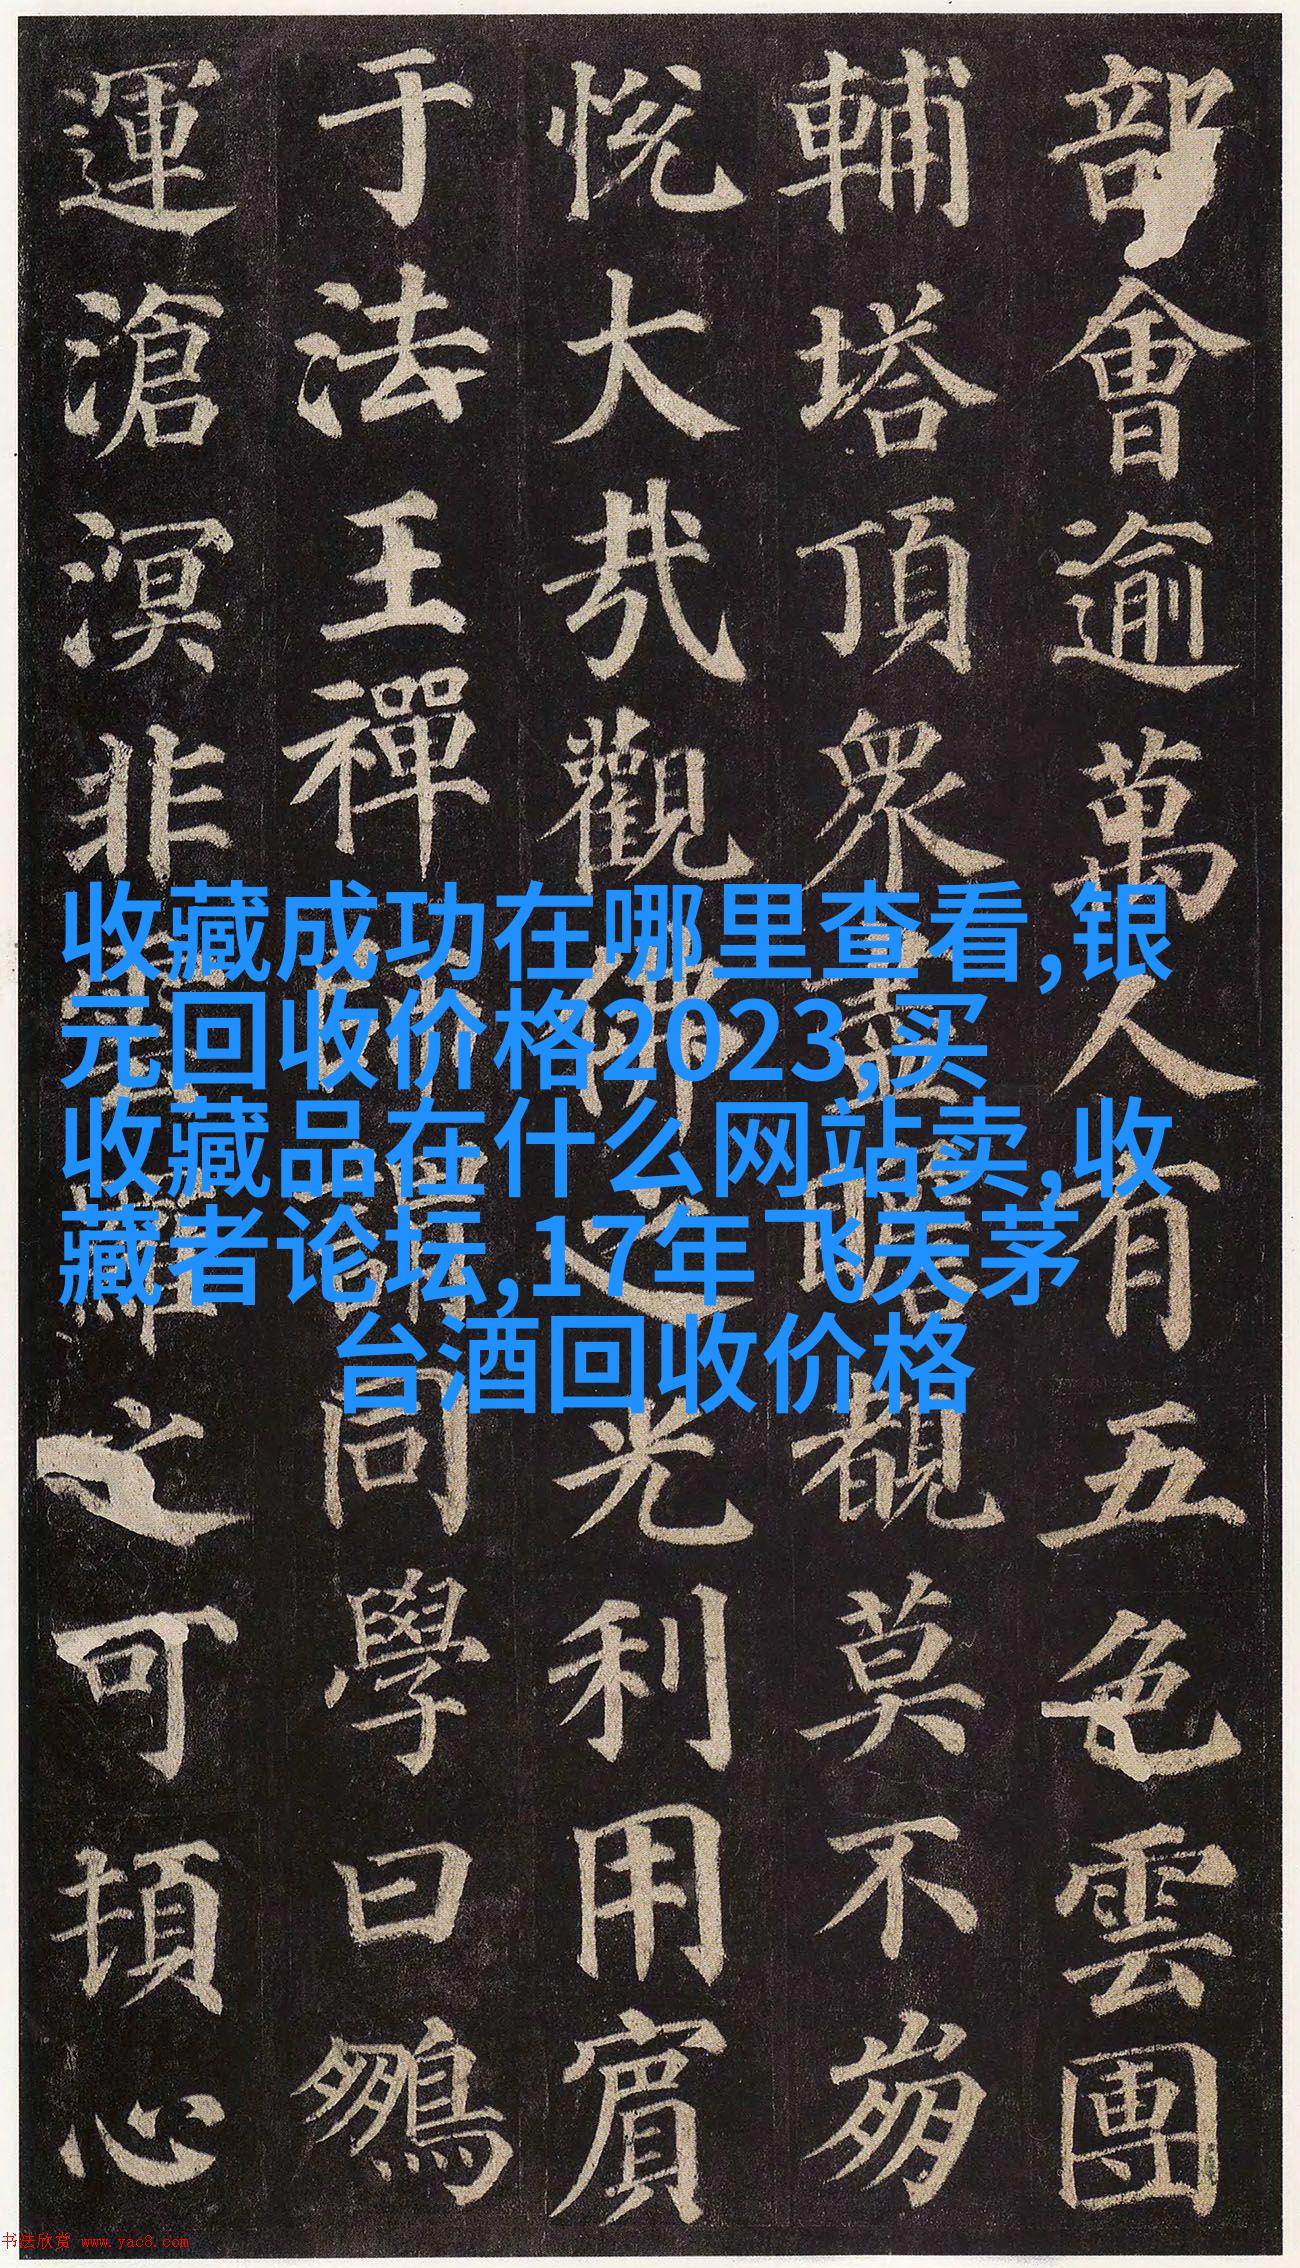 部會逾萬人有五色雲團
輔塔頂眾盡瞻覩莫不崩
悅大哉觀佛之光利用賓
于法王禪師謂同學曰鵬
運滄溟非雲羅之可頓心
收藏成功在哪里查看,银
元回收价格2023,买
收藏品在什么网站卖,收
藏者论坛,17年飞天茅
台酒回收价格
书法欣赏 www.yac8.com